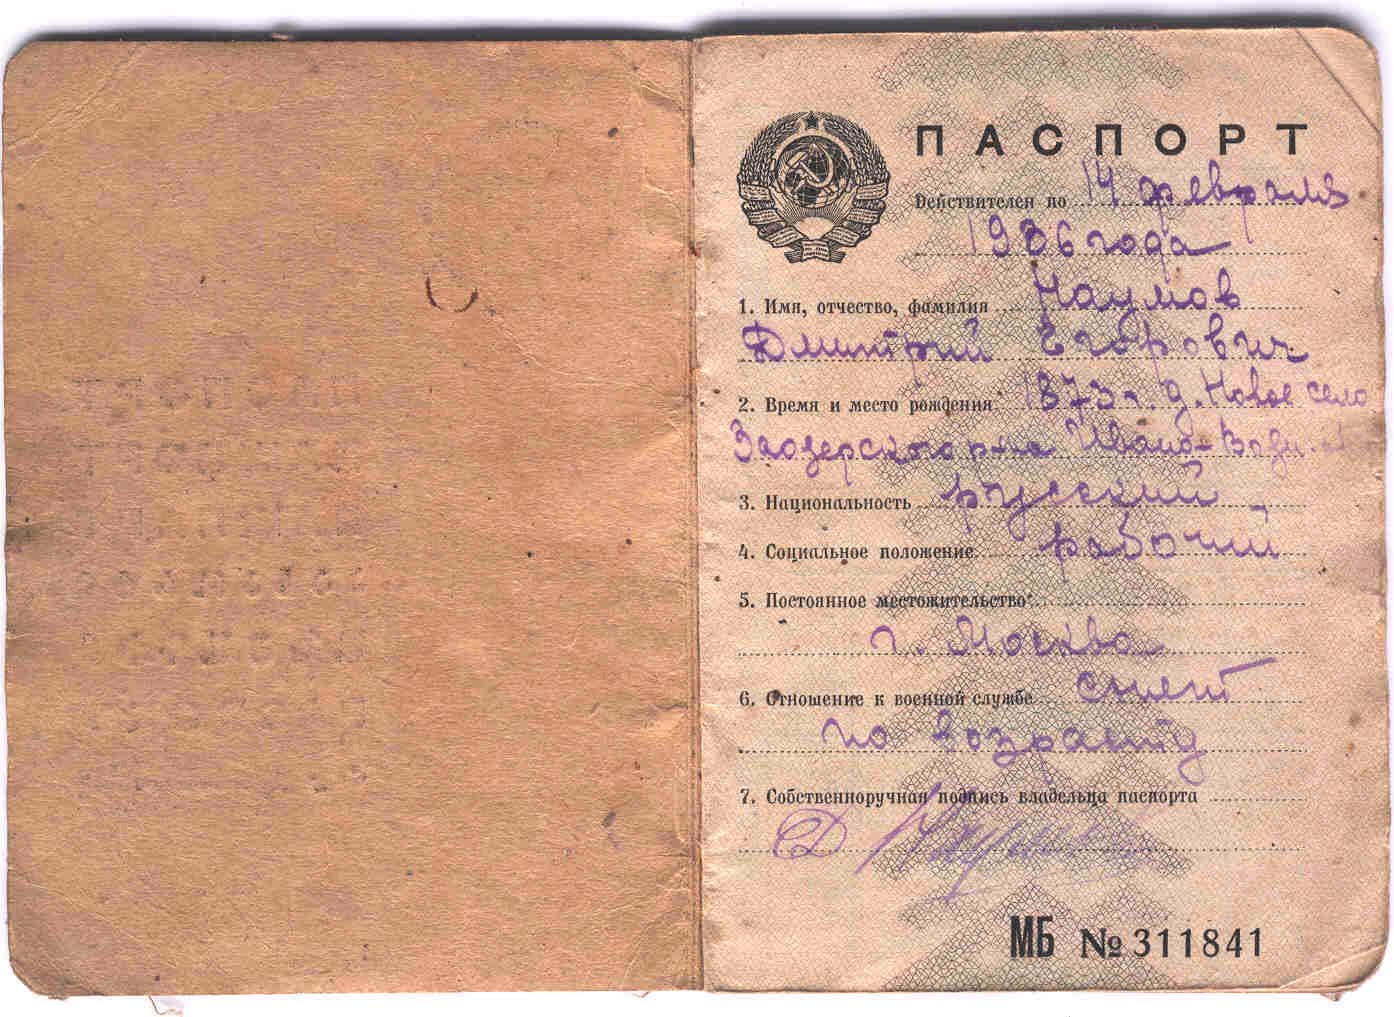 ПАСПОРТ
Действителен по 14 февраля
1936 года
1. Имя, отчество, фамилия Наумов
Дмитрий Егорович
2. Время и место рождения 1873 г. д. Новое село
Заозерского р-на Ивано-
3. Национальность русский
4. Социальное положение рабочий
5. Постоянное местожительство
г. Москва
6. Отношение к военной службе снят
по возрасту
7. Собственноручная подпись владельца паспорта
Д Наумов
МБ № 311841